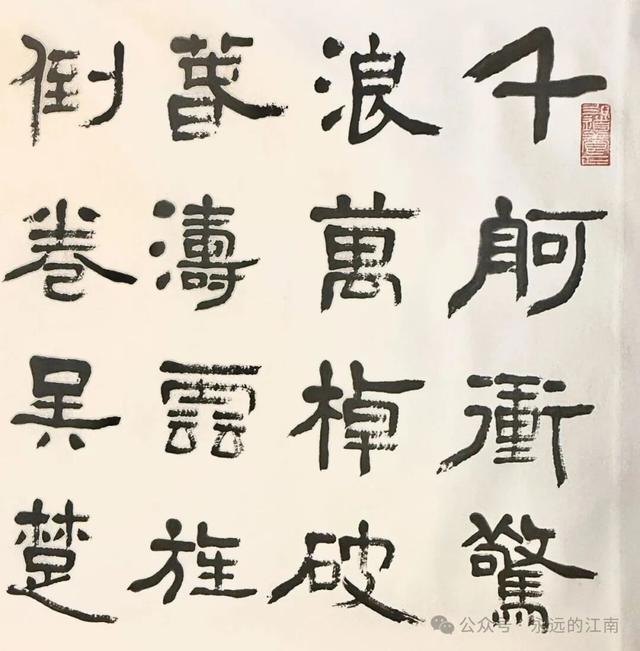 千舸衝驚
浪萬棹破
濤雲旌
倒卷吳楚
公众号 · 永远的江南